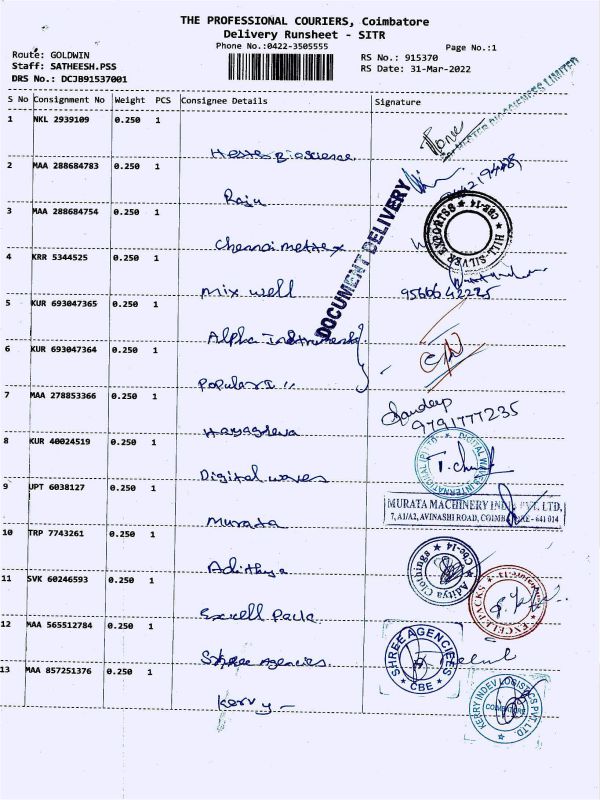 THE PROFESSIONAL COURIERS, Coimbatore
Delivery Runsheet - SITR
Phone No.:0422-3505555
Page No.:1
Route: GOLDWIN
Staff: SATHEESH.PSS
DRS No.: DCJB91537001
RS No.: 915370
RS Date: 31-Mar-2022
S No Consignment No Weight PCS Consignee Details Signature
1 NKL 2939109 0.250 1
2 MAA 288684783 0.250 1
Raju
3 MAA 288684754 0.250 1
Chennai mettex
HILL SILVER EXPORTS CBE-14
4 KRR 5344525 0.250 1
Mix well
9566642225
DOCUMENT DELIVERY
5 KUR 693047365 0.250 1
Alpha Instruments
6 KUR 693047364 0.250 1
Popular I "
7 MAA 278853366 0.250 1
Hayagreeva
Sandeep
9791777235
8 KUR 40024519 0.250 1
Digital waves
9 UPT 6038127 0.250 1
Murata
MURATA MACHINERY INDIA PVT. LTD,
7, A1/A2, AVINASHI ROAD, COIMBATORE - 641 014
10 TRP 7743261 0.250 1
Adithya
Aditya Clothings CBE-14
11 SVK 60246593 0.250 1
Excell Pack
EXCELL PACKS
12 MAA 565512784 0.250 1
Shree Agencies
SHREE AGENCIEES
CBE
13 MAA 857251376 0.250 1
Kerry
KERRY INDEV LOGISTICS PVT. LTD.
COIMBATORE